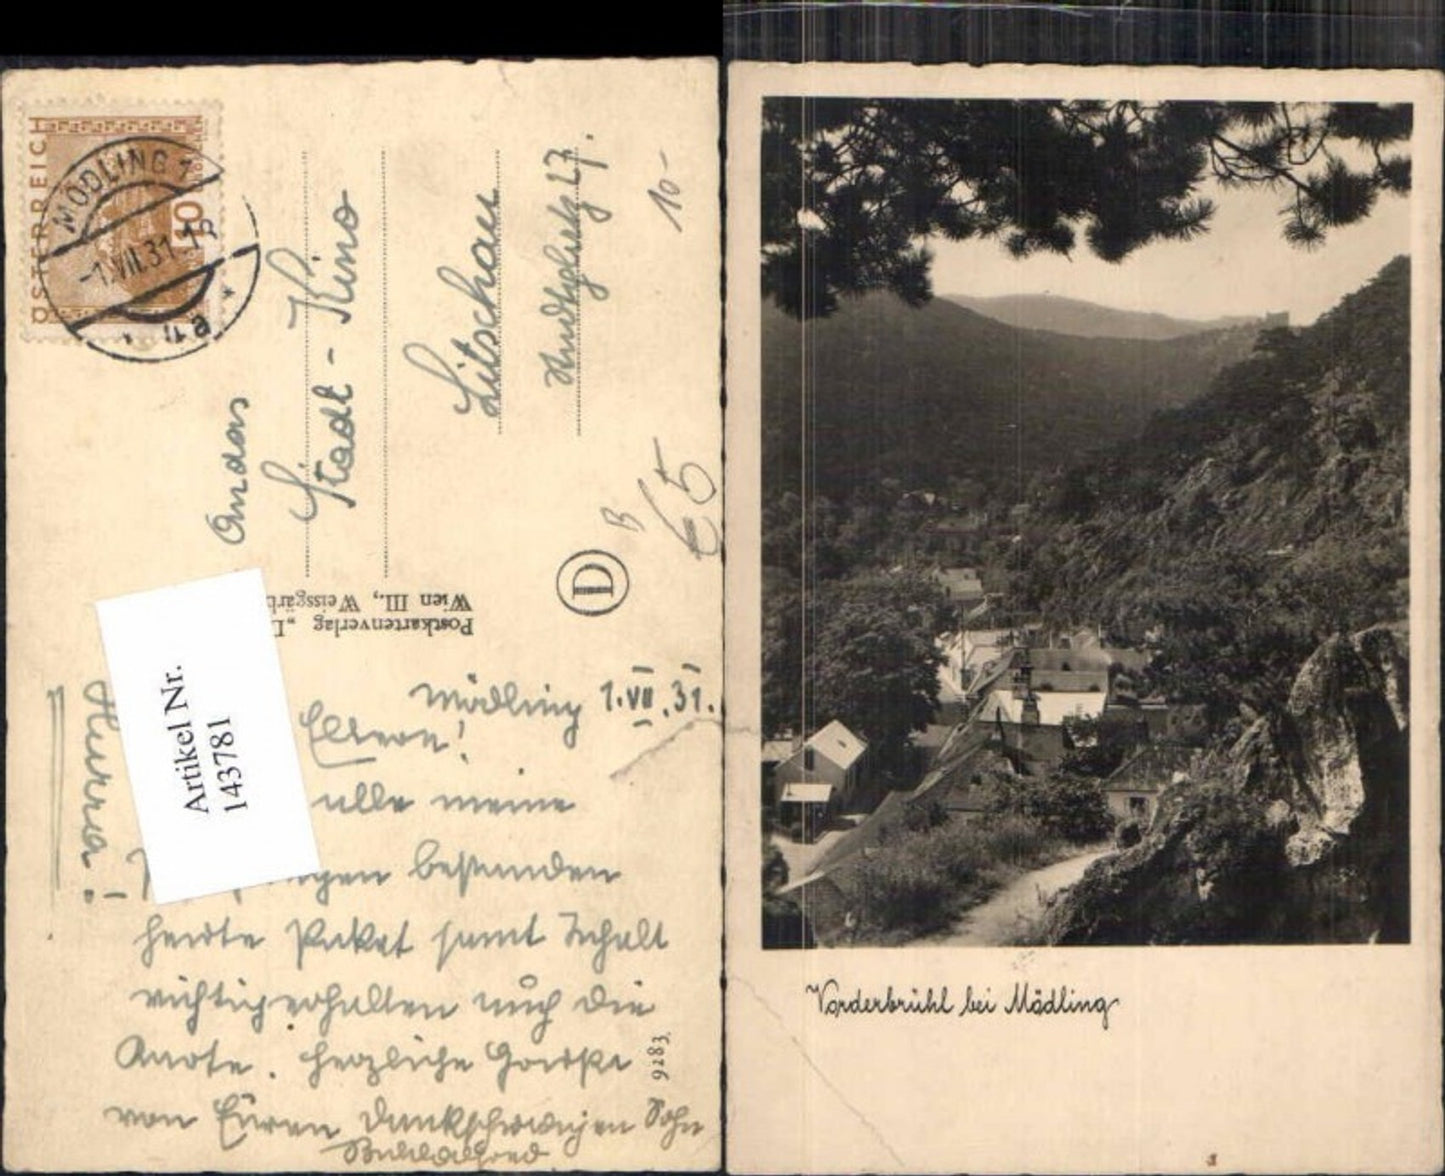 ÖSTERREICH
10
MÖDLING 1
-1.VII.31
4a
An das
Stadt-Kino
Litschau
10-
B
€5
D
Postkartenverlag „D
Wien III., Weissgärb
Artikel Nr.
143781
Hurra!
Mödling 1.VII.31.
Eltern!
alle meine
gen bestanden
heute Paket samt Inhalt
richtig erhalten auch die
Karte. Herzliche Grüße
von Euren dankschuldigen Sohn
9283
Vorderbrühl bei Mödling